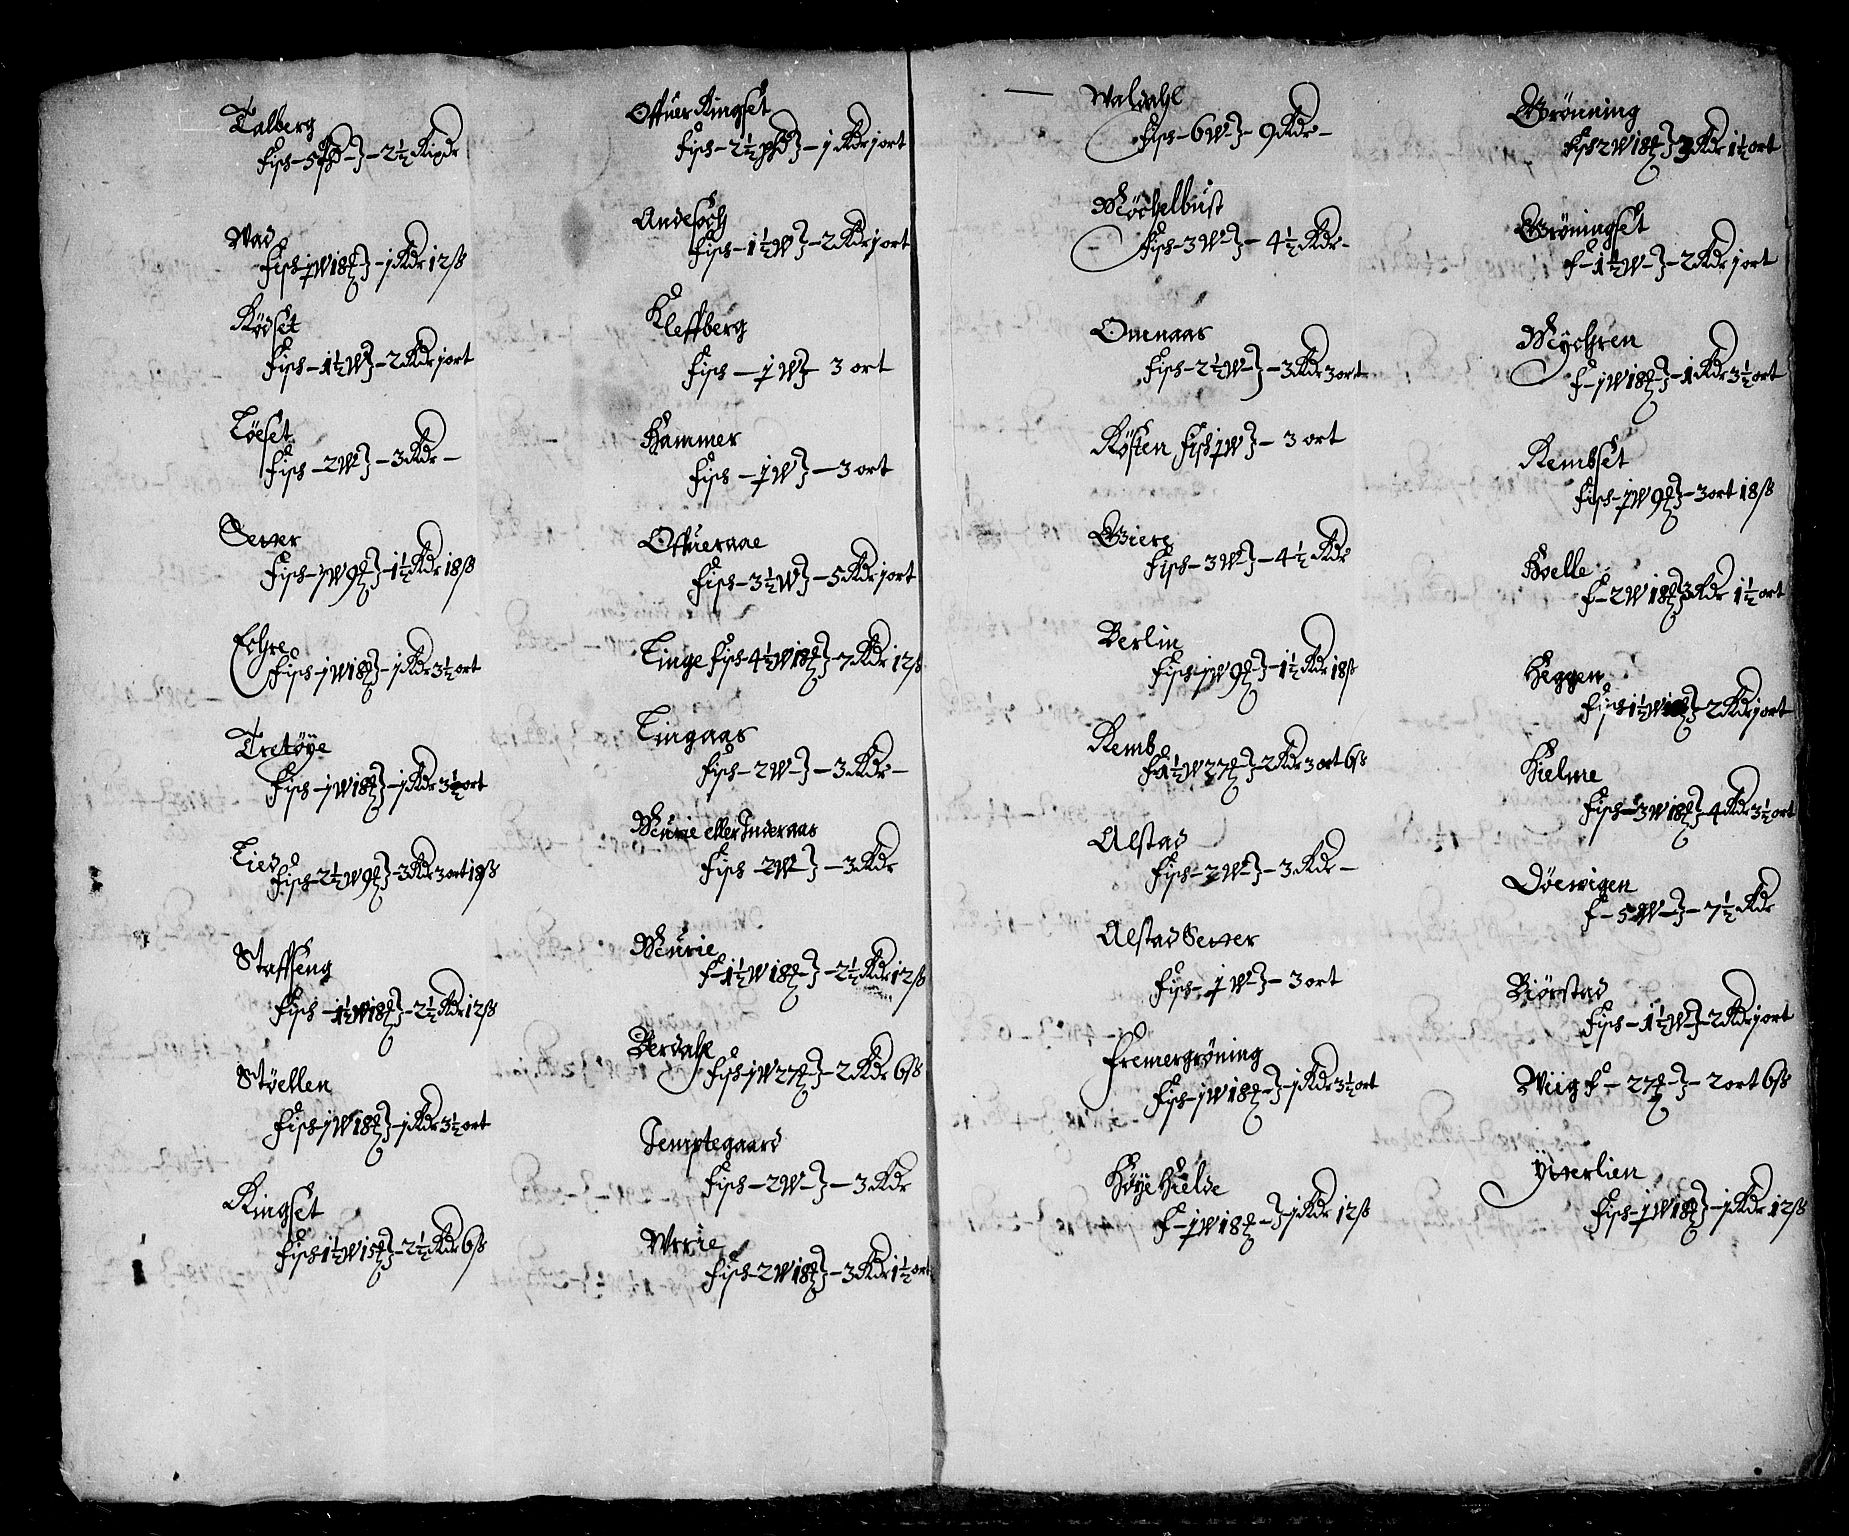 Talberg
Fisch - 5 - 2½ Rixdr
Wad
Fisch - j W 18 - j Rdr 12 ß
Rødset
Fisch - 1½ W - 2 Rdr j ort
Løeset
Fisch - 2 W - 3 Rdr -
Setter
Fisch - j W 9 - 1½ Rdr 18 ß
Echre
Fisch - j W 18 - j Rdr 3½ ort
Tretøye
Fisch - j W 18 - j Rdr 3½ ort
Lied
Fisch - 2½ W 9 - 3 Rdr 3 ort 18 ß
Staffseng
Fisch - 1½ W 18 - 2½ Rdr 12 ß
Støellen
Fisch - j W 18 - j Rdr 3½ ort
Ringset
Fisch 1½ W 15 - 2½ Rdr 6 ß
Offuer Ringset
Fisch - 2½ - j Rdr j ort
Andesoch
Fisch - 1½ W - 2 Rdr j ort
Kleffberg
Fisch - j W 3 ort
Hammer
Fisch - j W - 3 ort
Offueraae
Fisch - 3½ W - 5 Rdr j ort
Linge Fisch - 4½ W 18 - 7 Rdr 12 ß
Lingaas
Fisch - 2 W - 3 Rdr -
Meurie eller Inderaas
Fisch - 2 W - 3 Rdr
Meurie
F - 1½ W 18 - 2½ Rdr 12 ß
Berdahl
Fisch - j W 27 - 2 Rdr 6 ß
Jemptegaard
Fisch - 2 W - 3 Rdr
Vrrie
Fisch - 2 W 18 - 3 Rdr 1½ ort
Waldahl
Fisch - 6 W - 9 Rdr -
Møchelbust
Fisch - 3 W - 4½ Rdr -
Omenaas
Fisch - 2½ W - 3 Rdr 3 ort
Røsten Fisch j W - 3 ort
Giere
Fisch - 3 W - 4½ Rdr
Berlin
Fisch - j W 9 - 1½ Rdr 18 ß
Remb
F 1½ W 27 - 2 Rdr 3 ort 6 ß
Alstad
Fisch - 2 W - 3 Rdr -
Alstad Setter
Fisch - j W - 3 ort
Fremergrøning
Fisch - j W 18 - j Rdr 3½ ort
Høye Hielde
F - j W 18 - j Rdr 12 ß
Grønning
Fisch 2 W 18 3 Rdr 1½ ort
Grøningset
F - 1½ W - 2 Rdr j ort
Mychren
F - j W 18 - 1 Rdr 3½ ort
Rembset
Fisch - j W 9 - 3 ort 18 ß
Hoelle
F - 2 W 18 3 Rdr 1½ ort
Heggen
Fisch 1½ W - 2 Rdr j ort
Hielme
Fisch - 3 W 18 - 4 Rdr 3½ ort
Døewigen
F - 5 W - 7½ Rdr
Biørstad
Fisch - 1½ W - 2 Rdr j ort
Wiig F - 27 - 2 ort 6 ß
Ytterlien
Fisch - j W 18 - j Rdr 12 ß